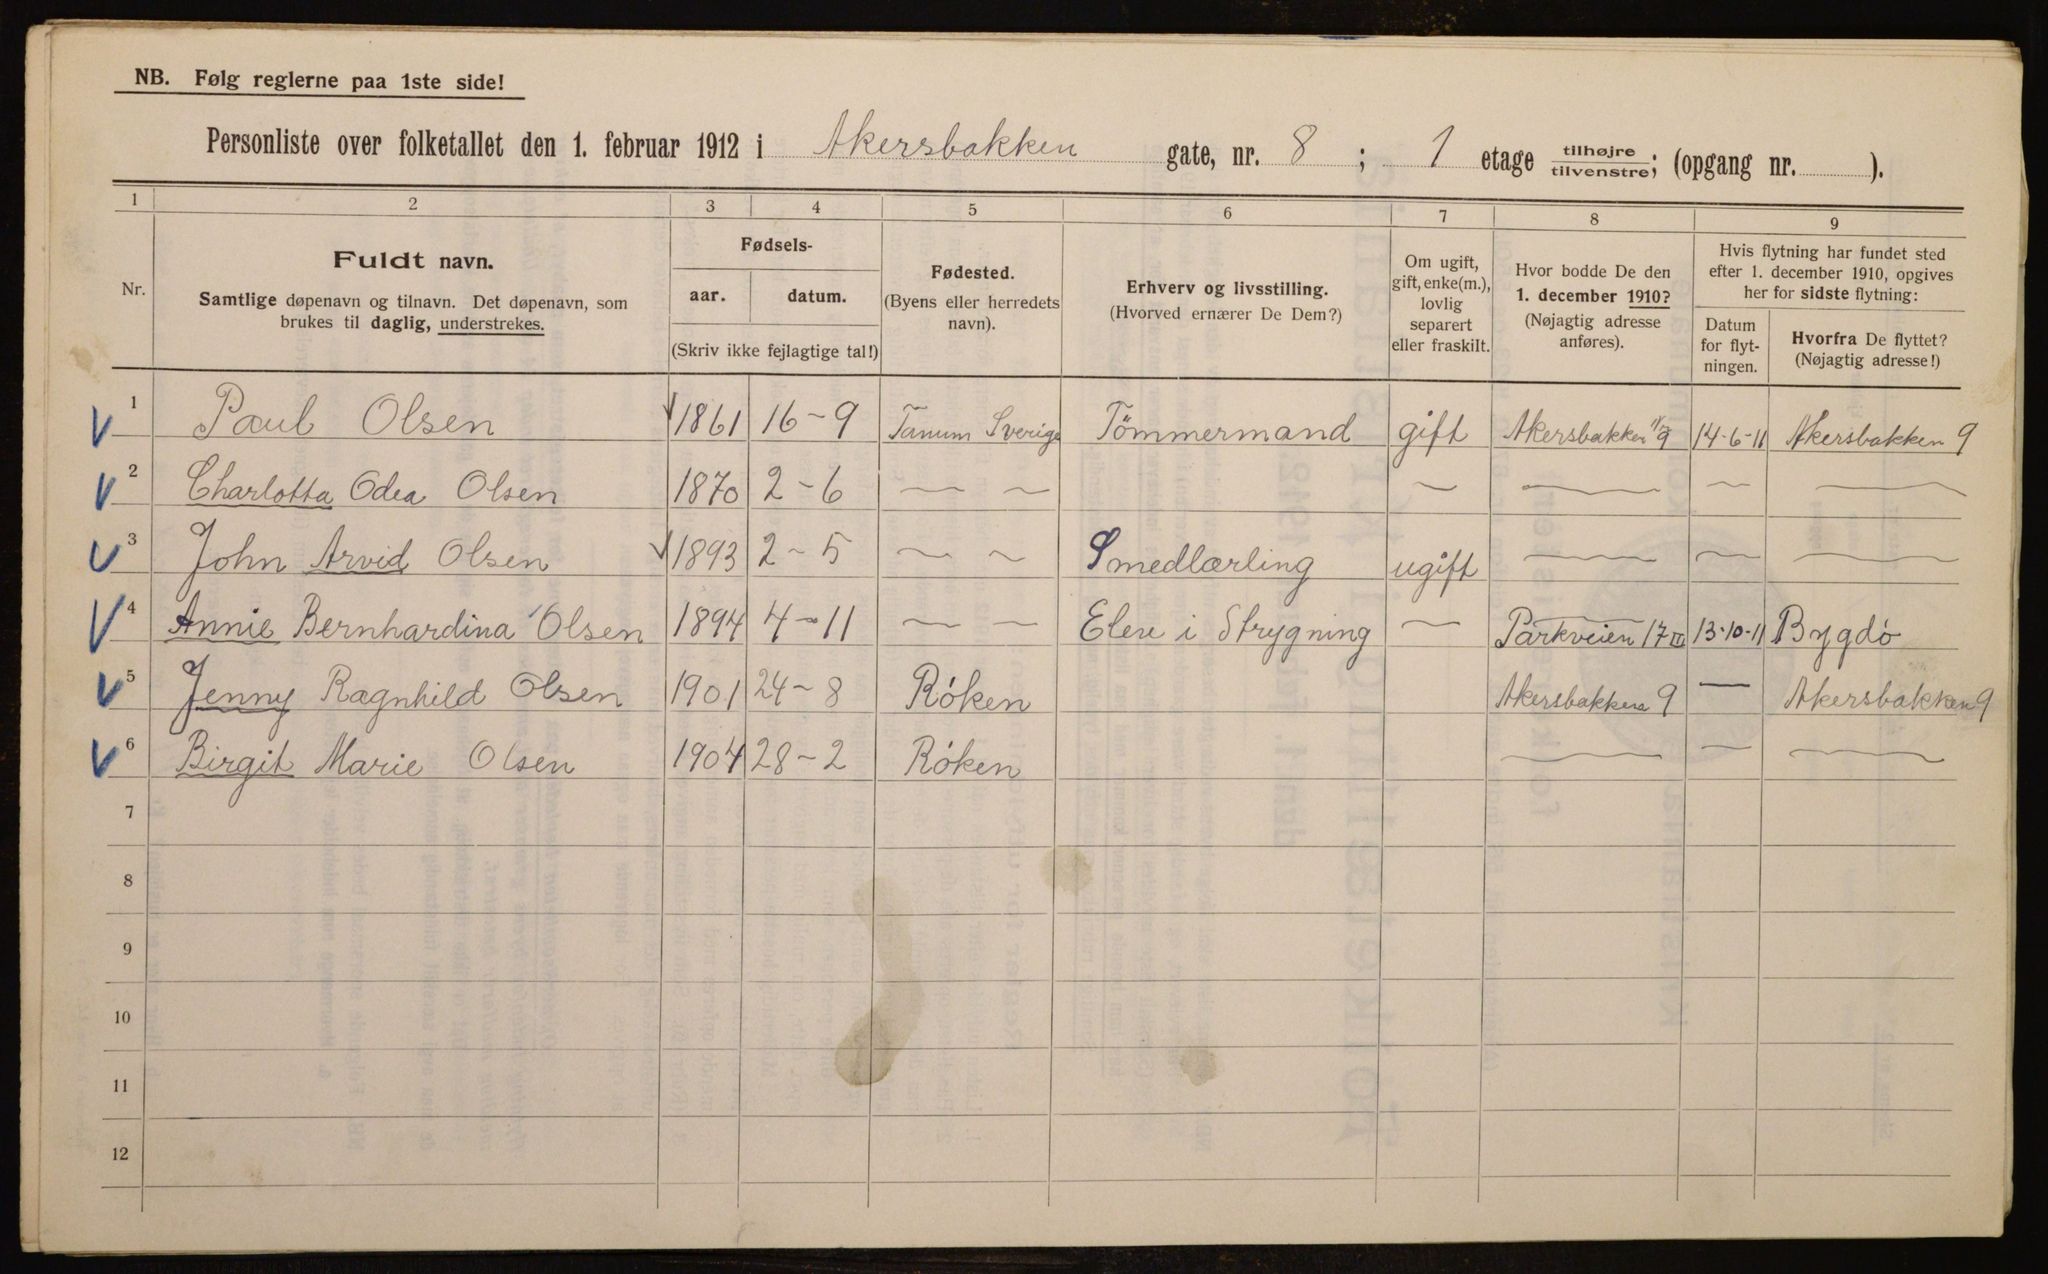 NB. Følg reglerne paa 1ste side!
Personliste over folketallet den 1. februar 1912 i Akersbakken gate, nr. 8 ; 1 etage tilhøjre/tilvenstre; (opgang nr. ).
1 2 3 4 5 6 7 8 9
Nr.
Fuldt navn.
Samtlige døpenavn og tilnavn. Det døpenavn, som
brukes til daglig, understrekes.
Fødsels-
aar. datum.
(Skriv ikke fejlagtige tal!)
Fødested.
(Byens eller herredets
navn).
Erhverv og livsstilling.
(Hvorved ernærer De Dem?)
Om ugift,
gift, enke(m.),
lovlig
separert
eller fraskilt.
Hvor bodde De den
1. december 1910?
(Nøjagtig adresse
anføres).
Hvis flytning har fundet sted
efter 1. december 1910, opgives
her for sidste flytning:
Datum
for flyt-
ningen.
Hvorfra De flyttet?
(Nøjagtig adresse!)
1 Paul Olsen 1861 16-9 Tanum Sverige Tömmermand gift Akersbakken 9 14-6-11 Akersbakken 9
2 Charlotta Odea Olsen 1870 2-6 — — — — — —
3 John Arvid Olsen 1893 2-5 — — Smedlærling ugift — — —
4 Annie Bernhardina Olsen 1894 4-11 — — Eleve i Strygning — Parkveien 17 III 13-10-11 Bygdö
5 Jenny Ragnhild Olsen 1901 24-8 Röken Akersbakken 9 — Akersbakken 9
6 Birgit Marie Olsen 1904 28-2 Röken — — —
7
8
9
10
11
12